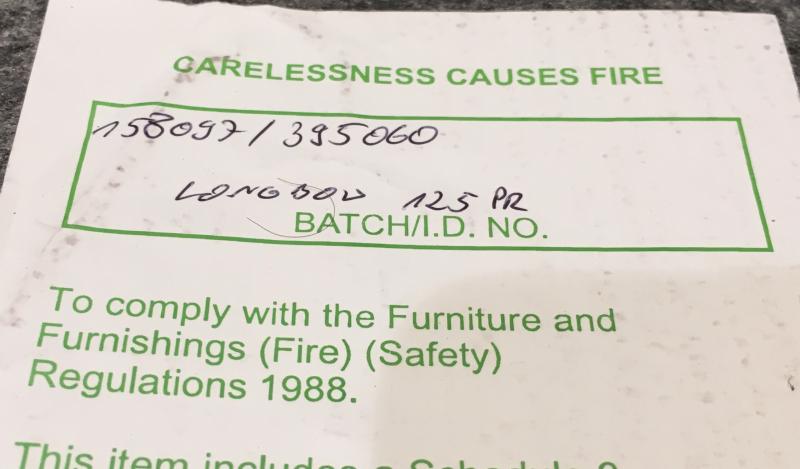 CARELESSNESS CAUSES FIRE
158097/395060
LONGBOW 125 PR
BATCH/I.D. NO.
To comply with the Furniture and
Furnishings (Fire) (Safety)
Regulations 1988.
This item includes a Schedule